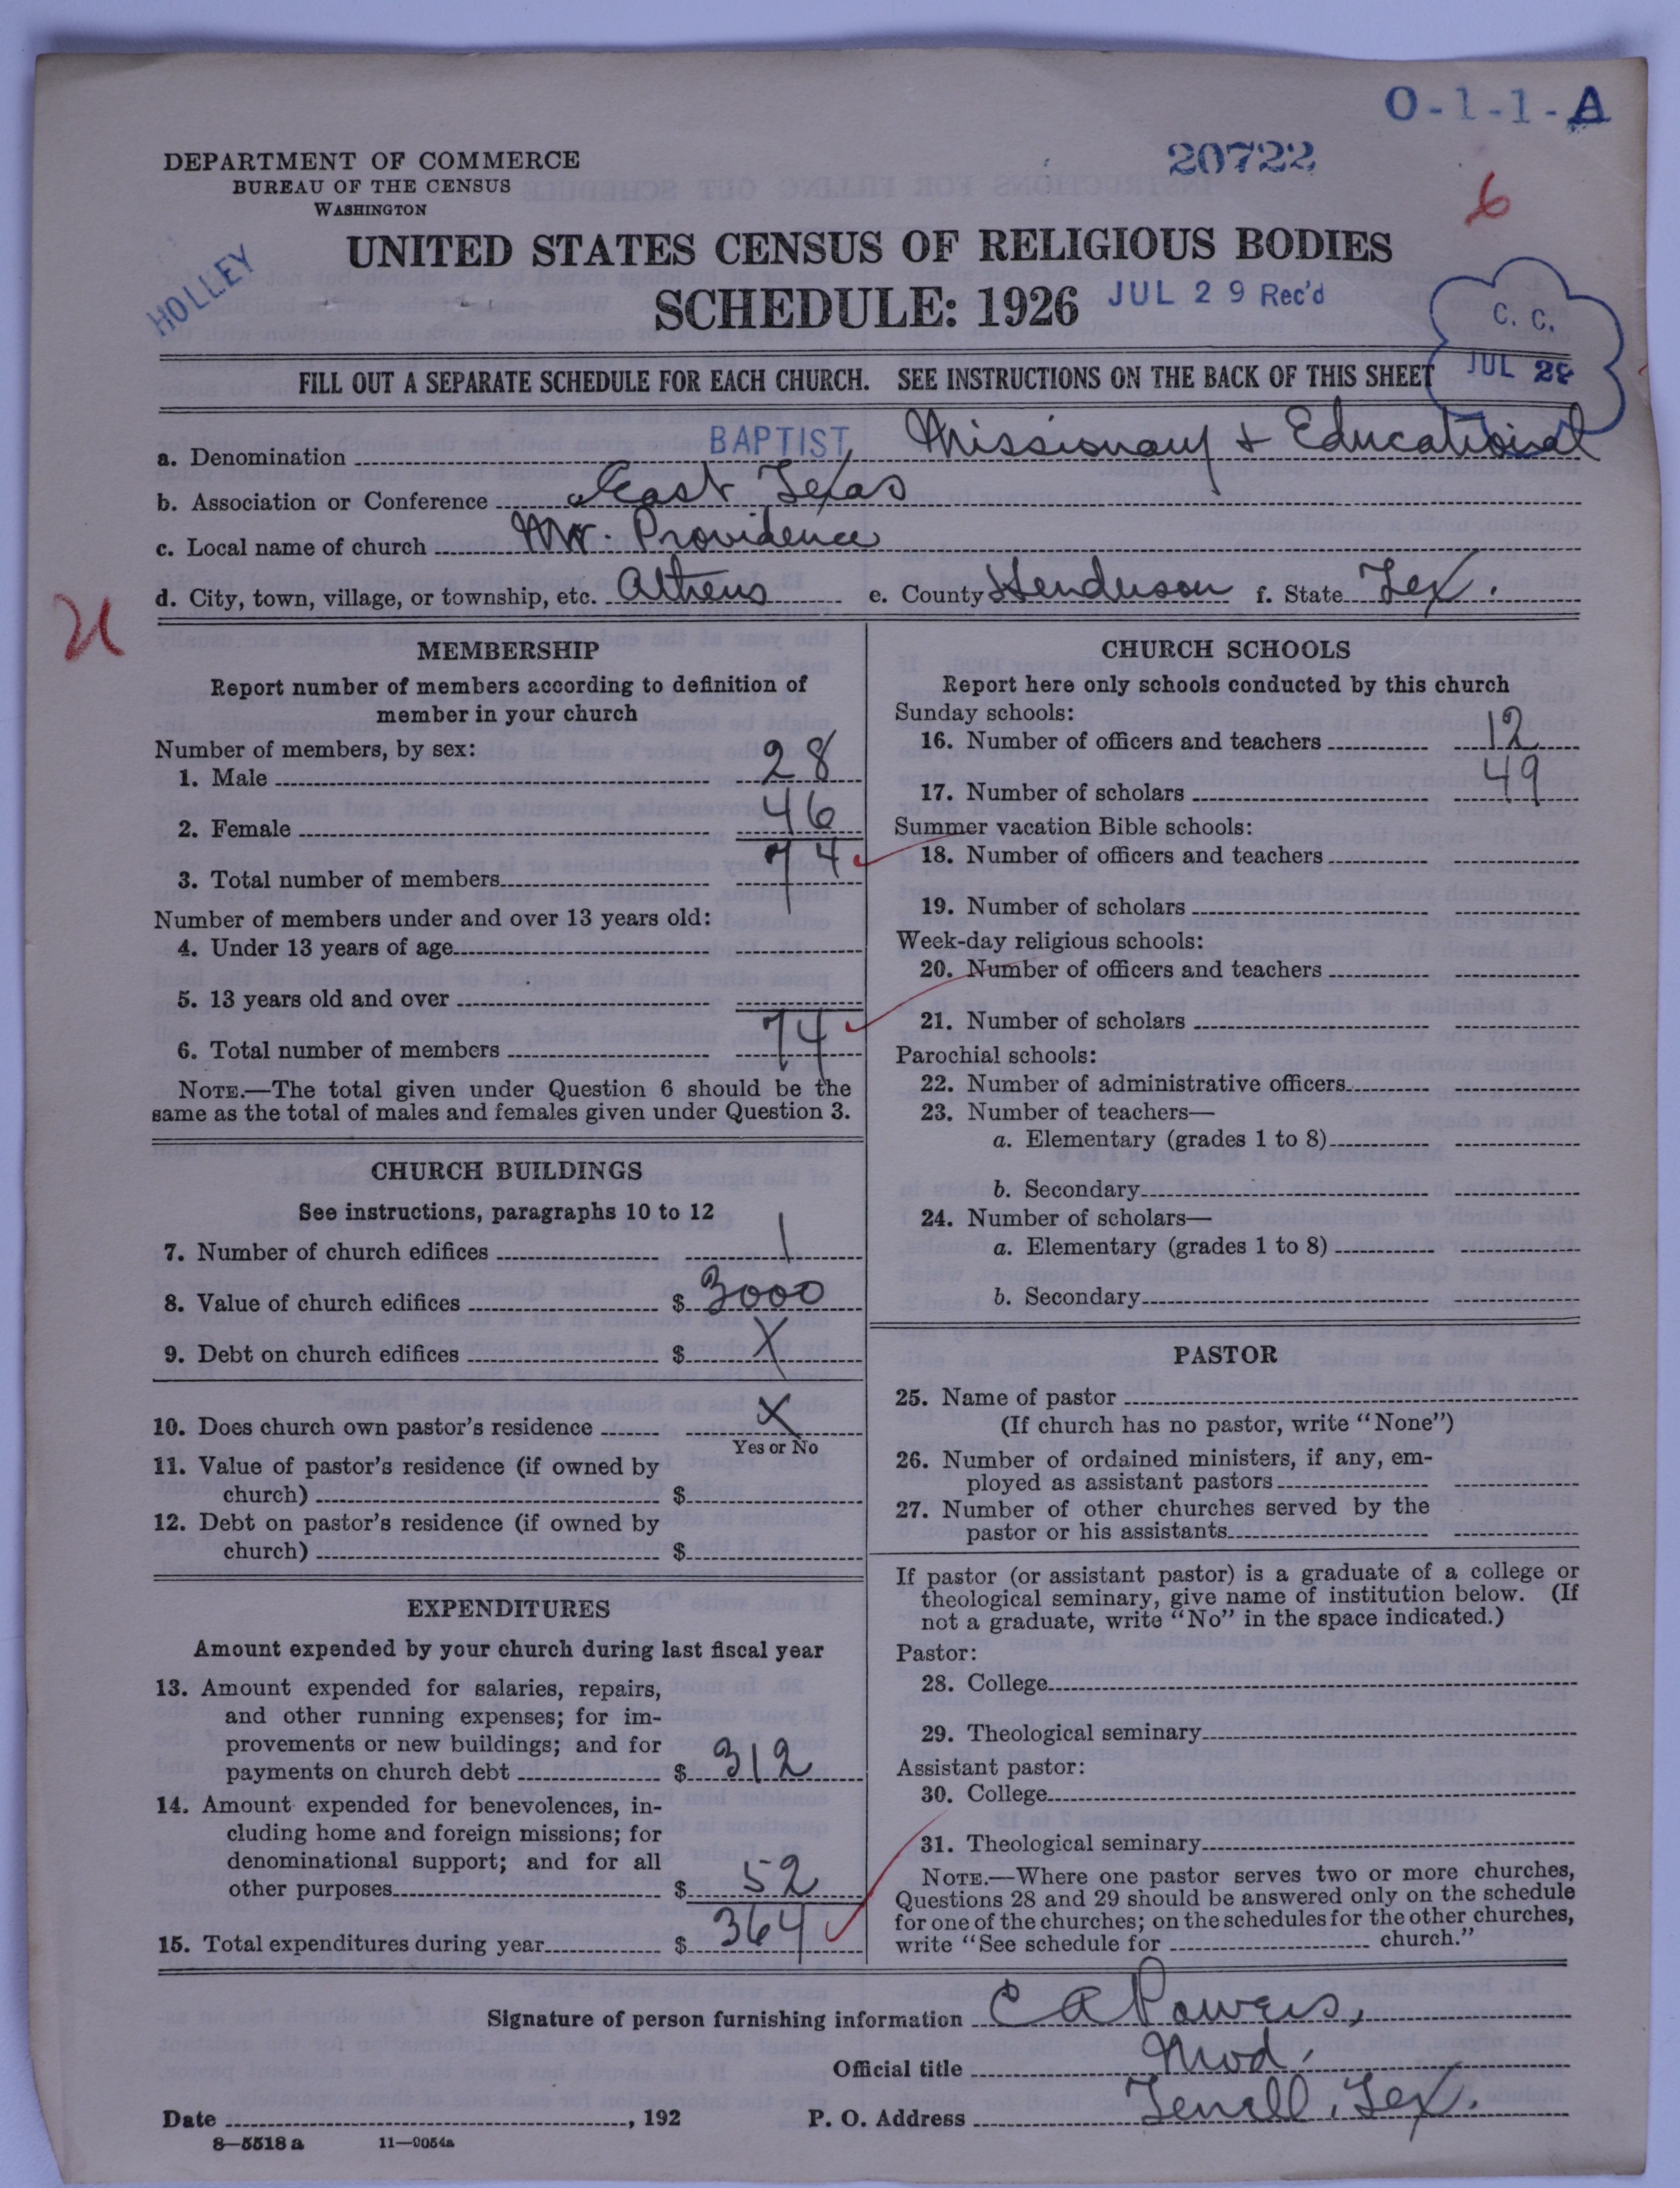 O-1-1-A
DEPARTMENT OF COMMERCE
20722
BUREAU OF THE CENSUS
WASHINGTON
6
HOLLEY
UNITED STATES CENSUS OF RELIGIOUS BODIES
SCHEDULE: 1926 JUL 29 Rec'd
C. C.
JUL 28
FILL OUT A SEPARATE SCHEDULE FOR EACH CHURCH. SEE INSTRUCTIONS ON THE BACK OF THIS SHEET
a. Denomination BAPTIST, Missionary & Educational
b. Association or Conference East Texas
c. Local name of church Mt. Providence
d. City, town, village, or township, etc. Athens e. County Henderson f. State Tex.
MEMBERSHIP
Report number of members according to definition of
member in your church
Number of members, by sex:
1. Male 28
2. Female 46
3. Total number of members 74
Number of members under and over 13 years old:
4. Under 13 years of age
5. 13 years old and over
6. Total number of members 74
NOTE.—The total given under Question 6 should be the
same as the total of males and females given under Question 3.
CHURCH BUILDINGS
See instructions, paragraphs 10 to 12
7. Number of church edifices 1
8. Value of church edifices $ 3000
9. Debt on church edifices $ X
10. Does church own pastor's residence X
Yes or No
11. Value of pastor's residence (if owned by
church) $
12. Debt on pastor's residence (if owned by
church) $
EXPENDITURES
Amount expended by your church during last fiscal year
13. Amount expended for salaries, repairs,
and other running expenses; for im-
provements or new buildings; and for
payments on church debt $ 312
14. Amount expended for benevolences, in-
cluding home and foreign missions; for
denominational support; and for all
other purposes $ 52
15. Total expenditures during year $ 364
CHURCH SCHOOLS
Report here only schools conducted by this church
Sunday schools:
16. Number of officers and teachers 12
17. Number of scholars 49
Summer vacation Bible schools:
18. Number of officers and teachers
19. Number of scholars
Week-day religious schools:
20. Number of officers and teachers
21. Number of scholars
Parochial schools:
22. Number of administrative officers
23. Number of teachers—
a. Elementary (grades 1 to 8)
b. Secondary
24. Number of scholars—
a. Elementary (grades 1 to 8)
b. Secondary
PASTOR
25. Name of pastor
(If church has no pastor, write "None")
26. Number of ordained ministers, if any, em-
ployed as assistant pastors
27. Number of other churches served by the
pastor or his assistants
If pastor (or assistant pastor) is a graduate of a college or
theological seminary, give name of institution below. (If
not a graduate, write "No" in the space indicated.)
Pastor:
28. College
29. Theological seminary
Assistant pastor:
30. College
31. Theological seminary
NOTE.—Where one pastor serves two or more churches,
Questions 28 and 29 should be answered only on the schedule
for one of the churches; on the schedules for the other churches,
write "See schedule for church."
Signature of person furnishing information C A Powers,
Official title Mod.
Date , 192 P. O. Address Terrell, Tex.
8—5518 a 11—9054a